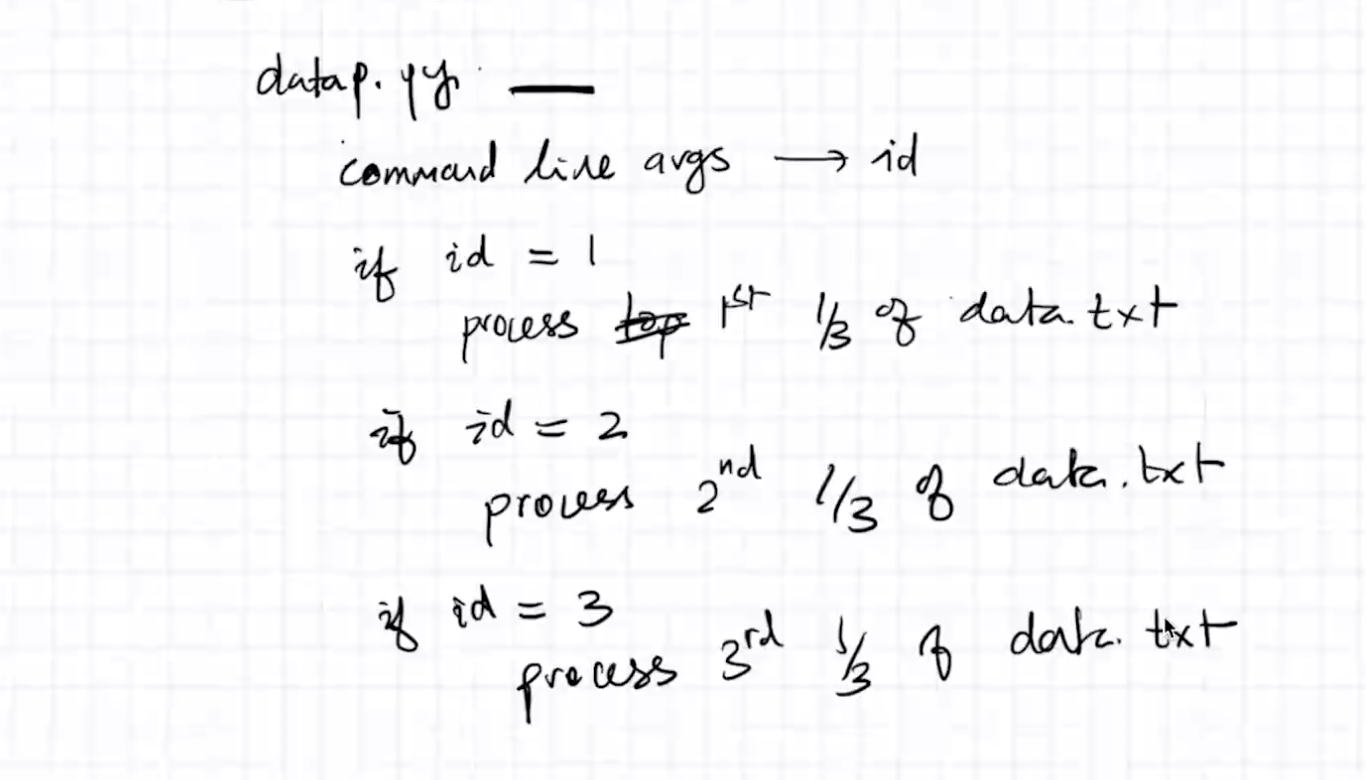 datap.py
command line args → id
if id = 1
process top 1st 1/3 of data.txt
if id = 2
process 2nd 1/3 of data.txt
if id = 3
process 3rd 1/3 of data.txt